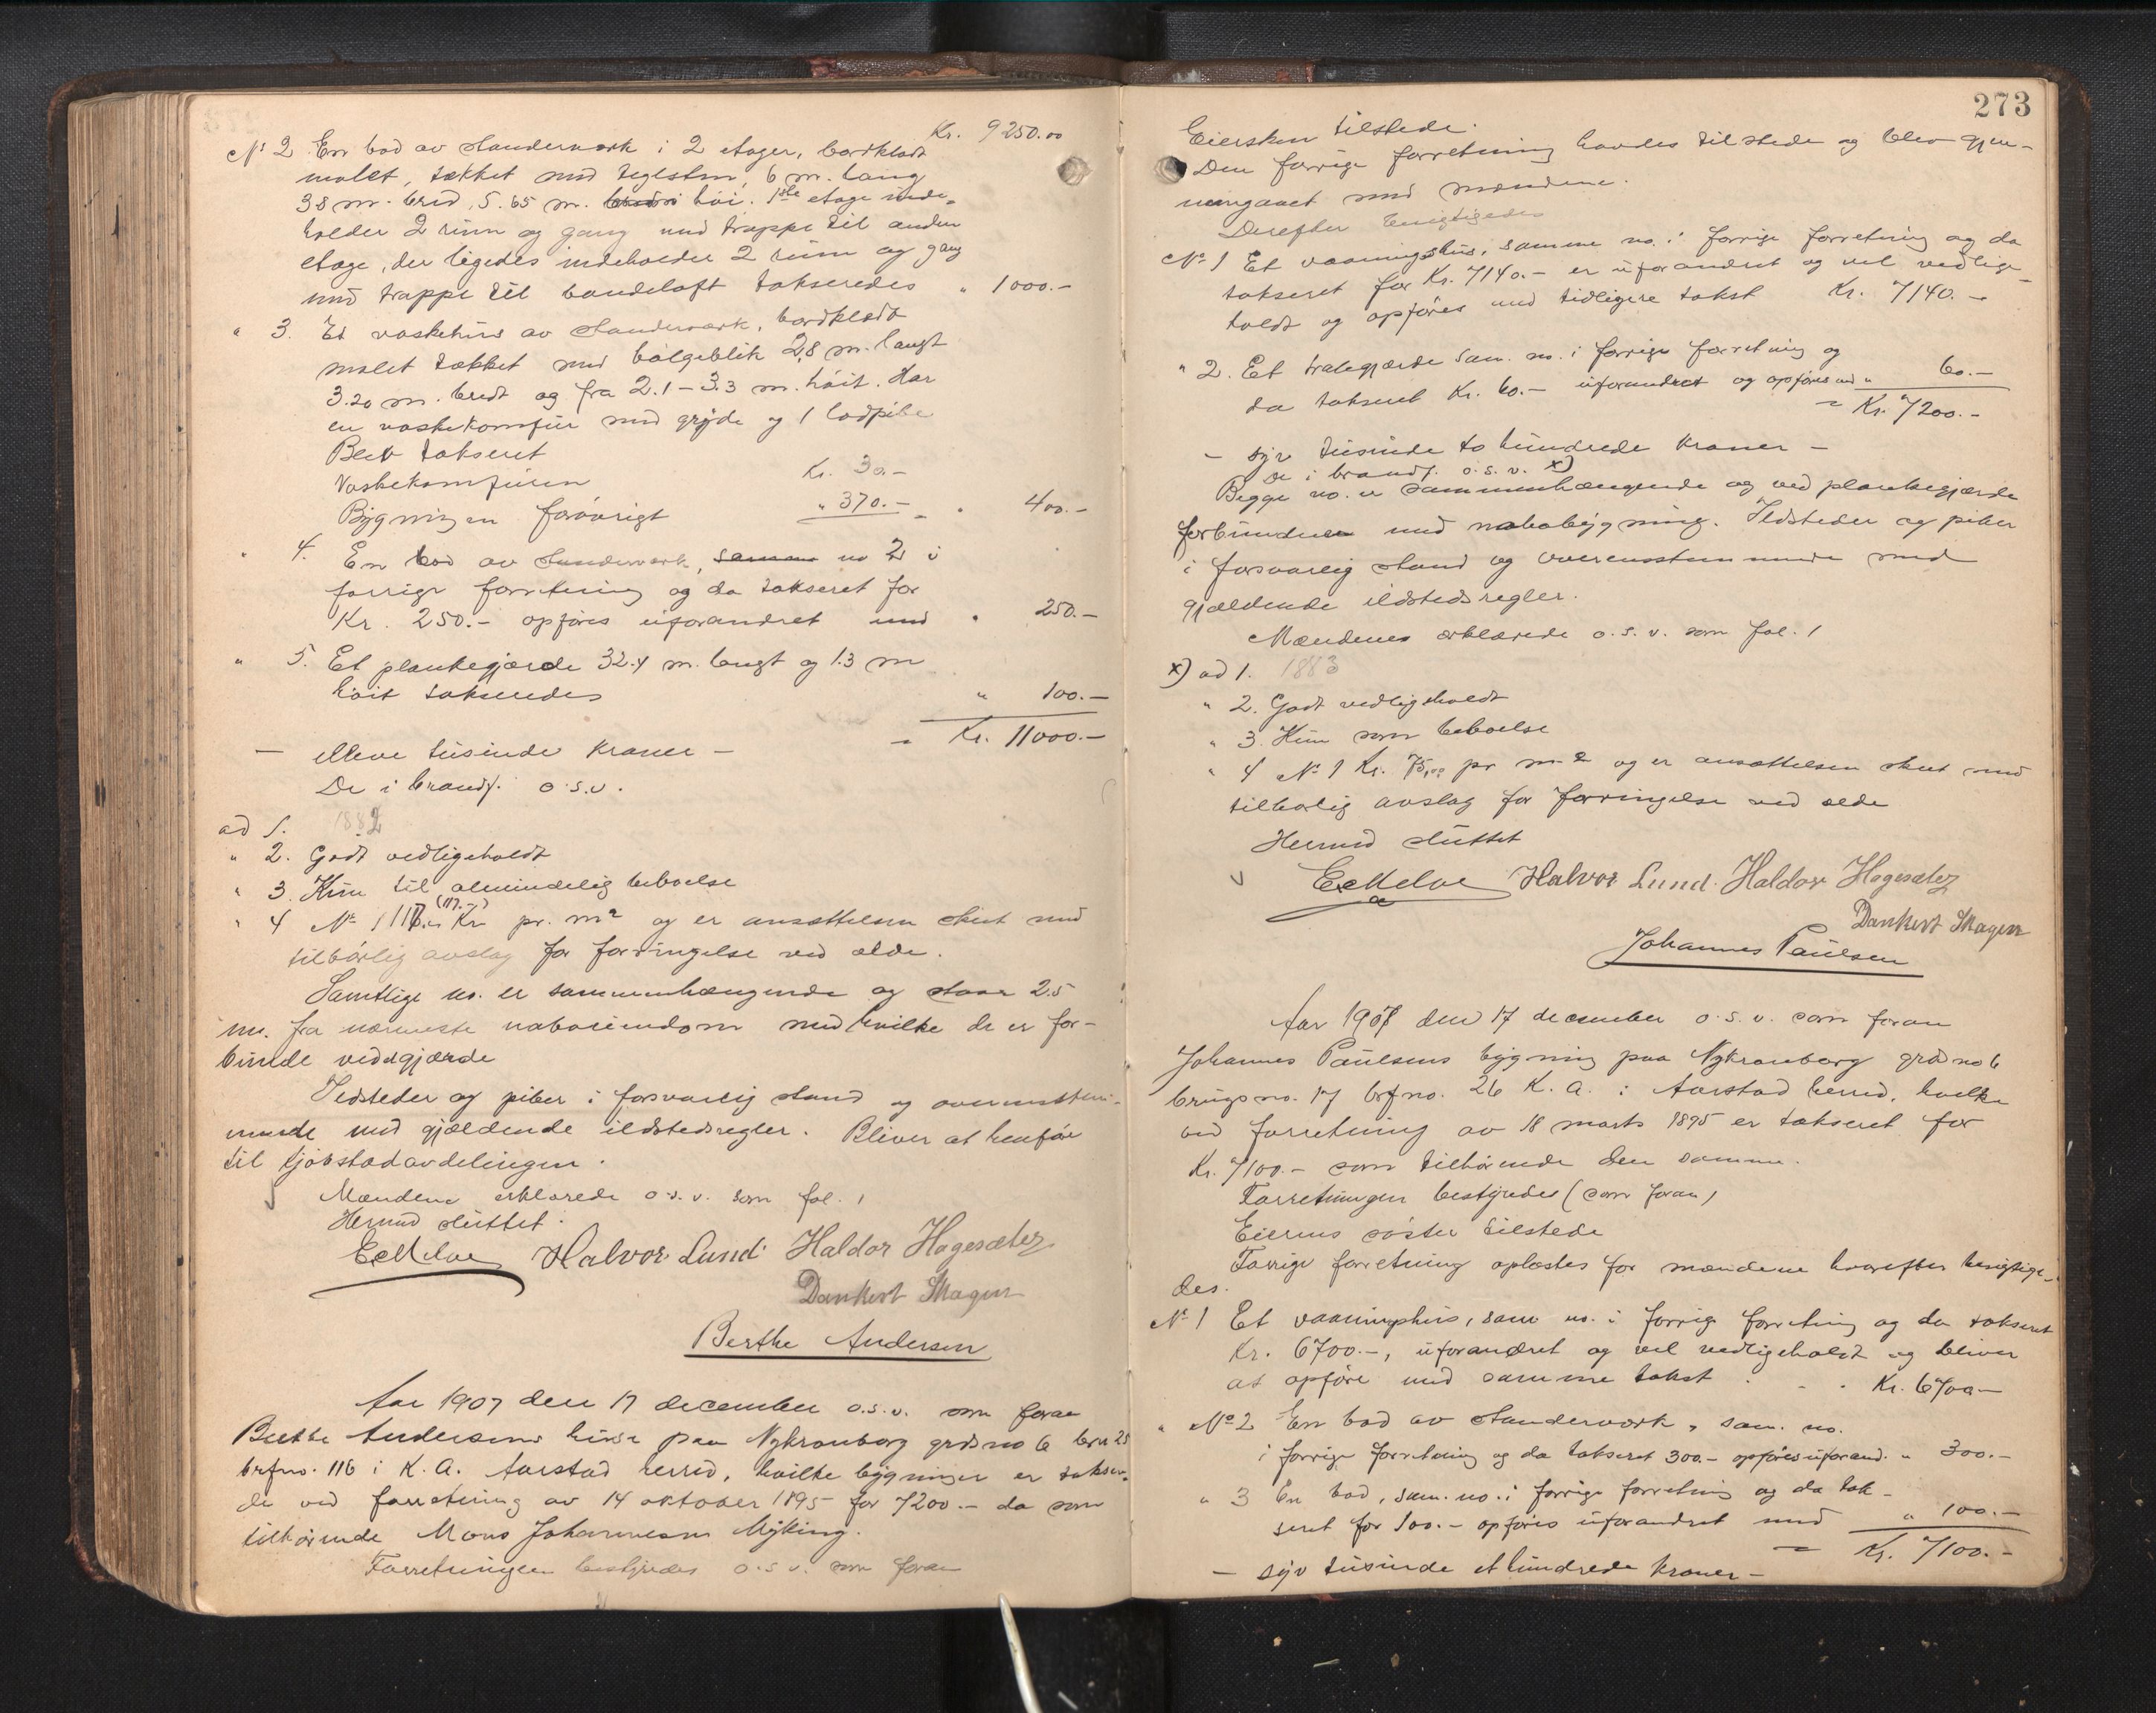 Kr. 9250.00
No 2 En bod av standerværk i 2 etager, bordklædt
malet, tækket med teglsten, 6 m. lang
3.8 m. bred, 5.65 m. høi. 1ste etage inde-
holder 2 rum og gang med trappe til anden
etage, der ligedes indeholder 2 rum og gang
med trappe til bandeloft takseredes " 1000.-
" 3. Et vaskehus av standerværk, bordklædt
malet tækket med bølgeblik 2,8 m. langt
3.20 m. bredt og fra 2.1-3.3 m. høit. Har
en vaskekomfur med gryde og 1 lodpibe
Blev takseret
Vaskekomfuren Kr. 30.-
Bygningen forøvrigt " 370.- = " 400.-
" 4. En bod av standerværk, samme no 2 i
forrige forretning og da takseret for
Kr. 250.- opføres uforandret med " 250.-
" 5. Et plankegjærde 32.4 m. langt og 1.3 m
høit takseredes " 100.-
= Kr. 11000.-
- elleve tusinde kroner -
De i brandf. o.s.v.
ad 1. 1882
" 2. Godt vedligeholdt
" 3 Kun til almindelig beboelse
" 4 No 1 Kr (117.-) pr. m2 og er ansættelsen skeet med
tilbørlig avslag for forringelse ved ælde.
Samtlige no. er sammenhængende og staar 2.5
m. fra nærmeste naboeiendom med hvilke de er for-
bundet ved gjærde
Ildsteder og piber i forsvarlig stand og overensstem-
mende med gjældende ildstedsregler. Bliver at henføre
til kjøbstadavdelingen.
Mændene erklærede o.s.v. som fol. 1
Hermed sluttet.
Halvor Lund. Haldor Hagesæter
Dankert Skagen
Berthe Andersen
Aar 1907 den 17 december o.s.v. som foran
Berthe Andersens huse paa Nykronborg grdsno 6 brn 25
brfno. 116 i K. A. Aarstad herred, hvilke bygninger er takser-
de ved forretning av 14 oktober 1895 for 7200.- da som
tilhørende Mons Johannesen Myking.
Forretningen bestyredes o.s.v. som foran
273
Eiersken tilstede.
Den forrige forretning havdes tilstede og blev gjen-
nemgaaet med mændene.
Derefter besigtigedes
No 1 Et vaaningshus, samme no. i forrige forretning og da
takseret for Kr. 7140.- er uforandret og vel vedlige-
holdt og opføres med tidligere takst Kr. 7140.-
" 2. Et trægjærde sam. no. i forrige forretning og
da takseret Kr. 60.- uforandret og opføres med " 60.-
= Kr. 7200.-
- syv tusinde to hundrede kroner -
De i brandf. o.s.v. x)
Begge no. er sammenhængende og ved plankegjærde
forbundne med nabobygning. Ildsteder og piber
i forsvarlig stand og overensstemmende med
gjældende ildstedsregler.
Mændenes erklærede o.s.v. som fol. 1
x) ad 1. 1883
" 2. Godt vedligeholdt
" 3. Kun som beboelse
" 4 No 1 Kr. 75,00 pr m2 og er ansættelsen skeet med
tilbørlig avslag for forringelse ved ælde
Hermed sluttet
Halvor Lund. Haldor Hagesæter
Dankert Skagen
Johannes Paulsen
Aar 1907 den 17 december o.s.v. som foran
Johannes Paulsens bygning paa Nykronborg grdno 6
brugsno. 17 brfno. 26 K. A. i Aarstad herred, hvilke
ved forretning av 18 marts 1895 er takseret for
Kr. 7100.- som tilhørende den samme.
Forretningen bestyredes (som foran)
Eierens søster tilstede
Forrige forretning oplæstes for mændene hvorefter besigtige-
des.
No 1 Et vaaningshus, sam no. i forrige forretning og da takseret
Kr. 6700.-, uforandret og vel vedligeholdt og bliver
at opføre med samme takst . . . Kr. 6700-
" No 2 En bod av standerværk, sam. no.
i forrige forretning og da takseret 300.- opføres uforand. " 300.-
" 3 En bod, sam. no. i forrige forretning og da tak-
seret for 100.- opføres uforandret med " 100.-
= Kr. 7100.-
- syv tusinde et hundrede kroner -